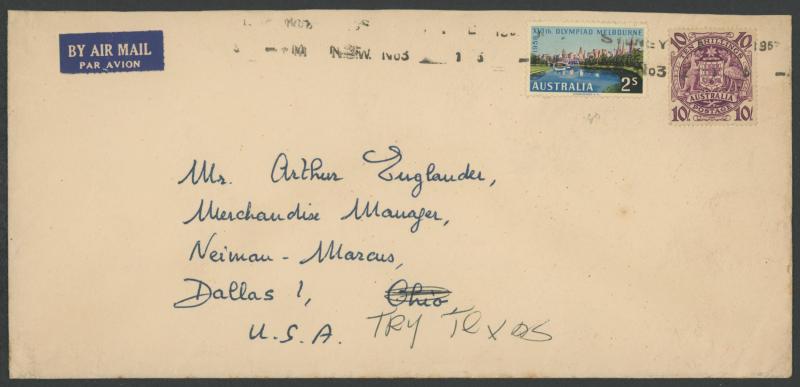 BY AIR MAIL
PAR AVION
1956 XVIth OLYMPIAD MELBOURNE
AUSTRALIA 2s
10/- TEN SHILLINGS 10/-
AUSTRALIA
10/- POSTAGE 10/-
SYDNEY
N.S.W. No3 1 3
No3
Mr. Arthur Englander,
Merchandise Manager,
Neiman - Marcus,
Dallas 1, Ohio
U.S.A. TRY TEXAS